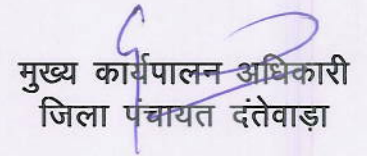 मुख्य कार्यपालन अधिकारी
जिला पंचायत दंतेवाड़ा